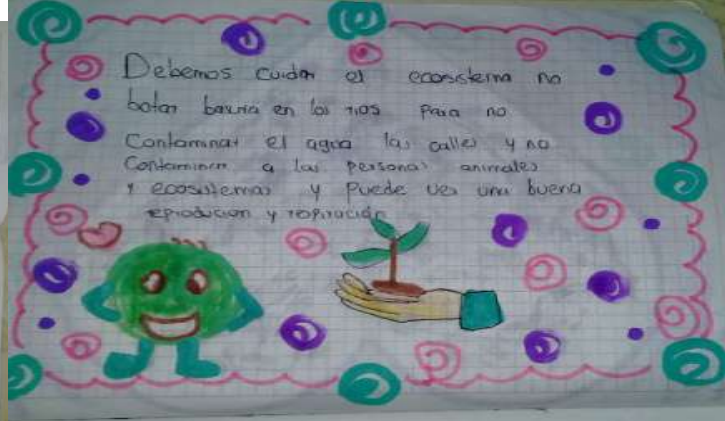 Debemos cuidar el ecorsistema no
botar basura en los rios para no
Contaminar el agua las calles y no
Contaminen a las personas animales
y ecosistemas y puede ver una buena
reproducion y respiración